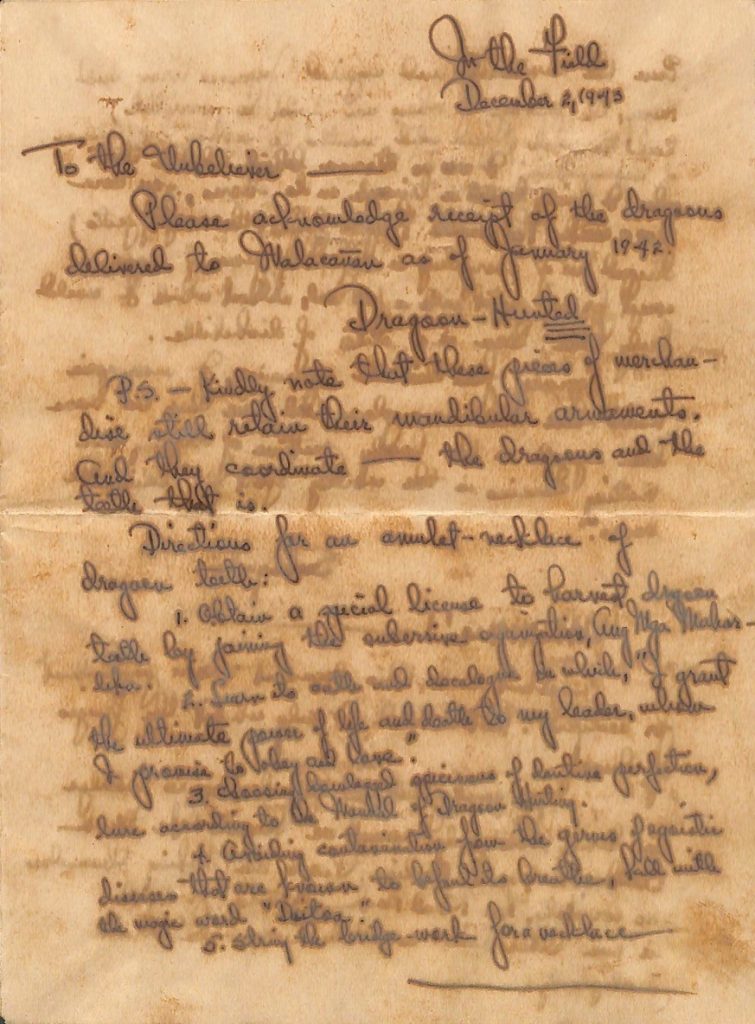 In the Field
December 2, 1943
To the Unbeliever —
Please acknowledge receipt of the dragoons
delivered to Malacañan as of January 1942.
Dragoon-Hunted
P.S. — Kindly note that these pieces of merchan-
dise still retain their mandibular armaments.
And they coordinate — the dragoons and the
teeth that is.
Directions for an amulet-necklace of
dragoon teeth:
1. Obtain a special license to harvest dragoon
teeth by joining the subersive organization, Ang Mga
2. Learn its oath and decalogue in which, "I grant
the ultimate power of life and death to my leader, whom
I promise to obey and love."
3. Choosing specimens of dentine perfection,
lure according to the Manual of Dragoon Hunting.
4. contamination from the
diseases that are known to its breathe, kill with
the magic word
5. String the bridge-work for a necklace —